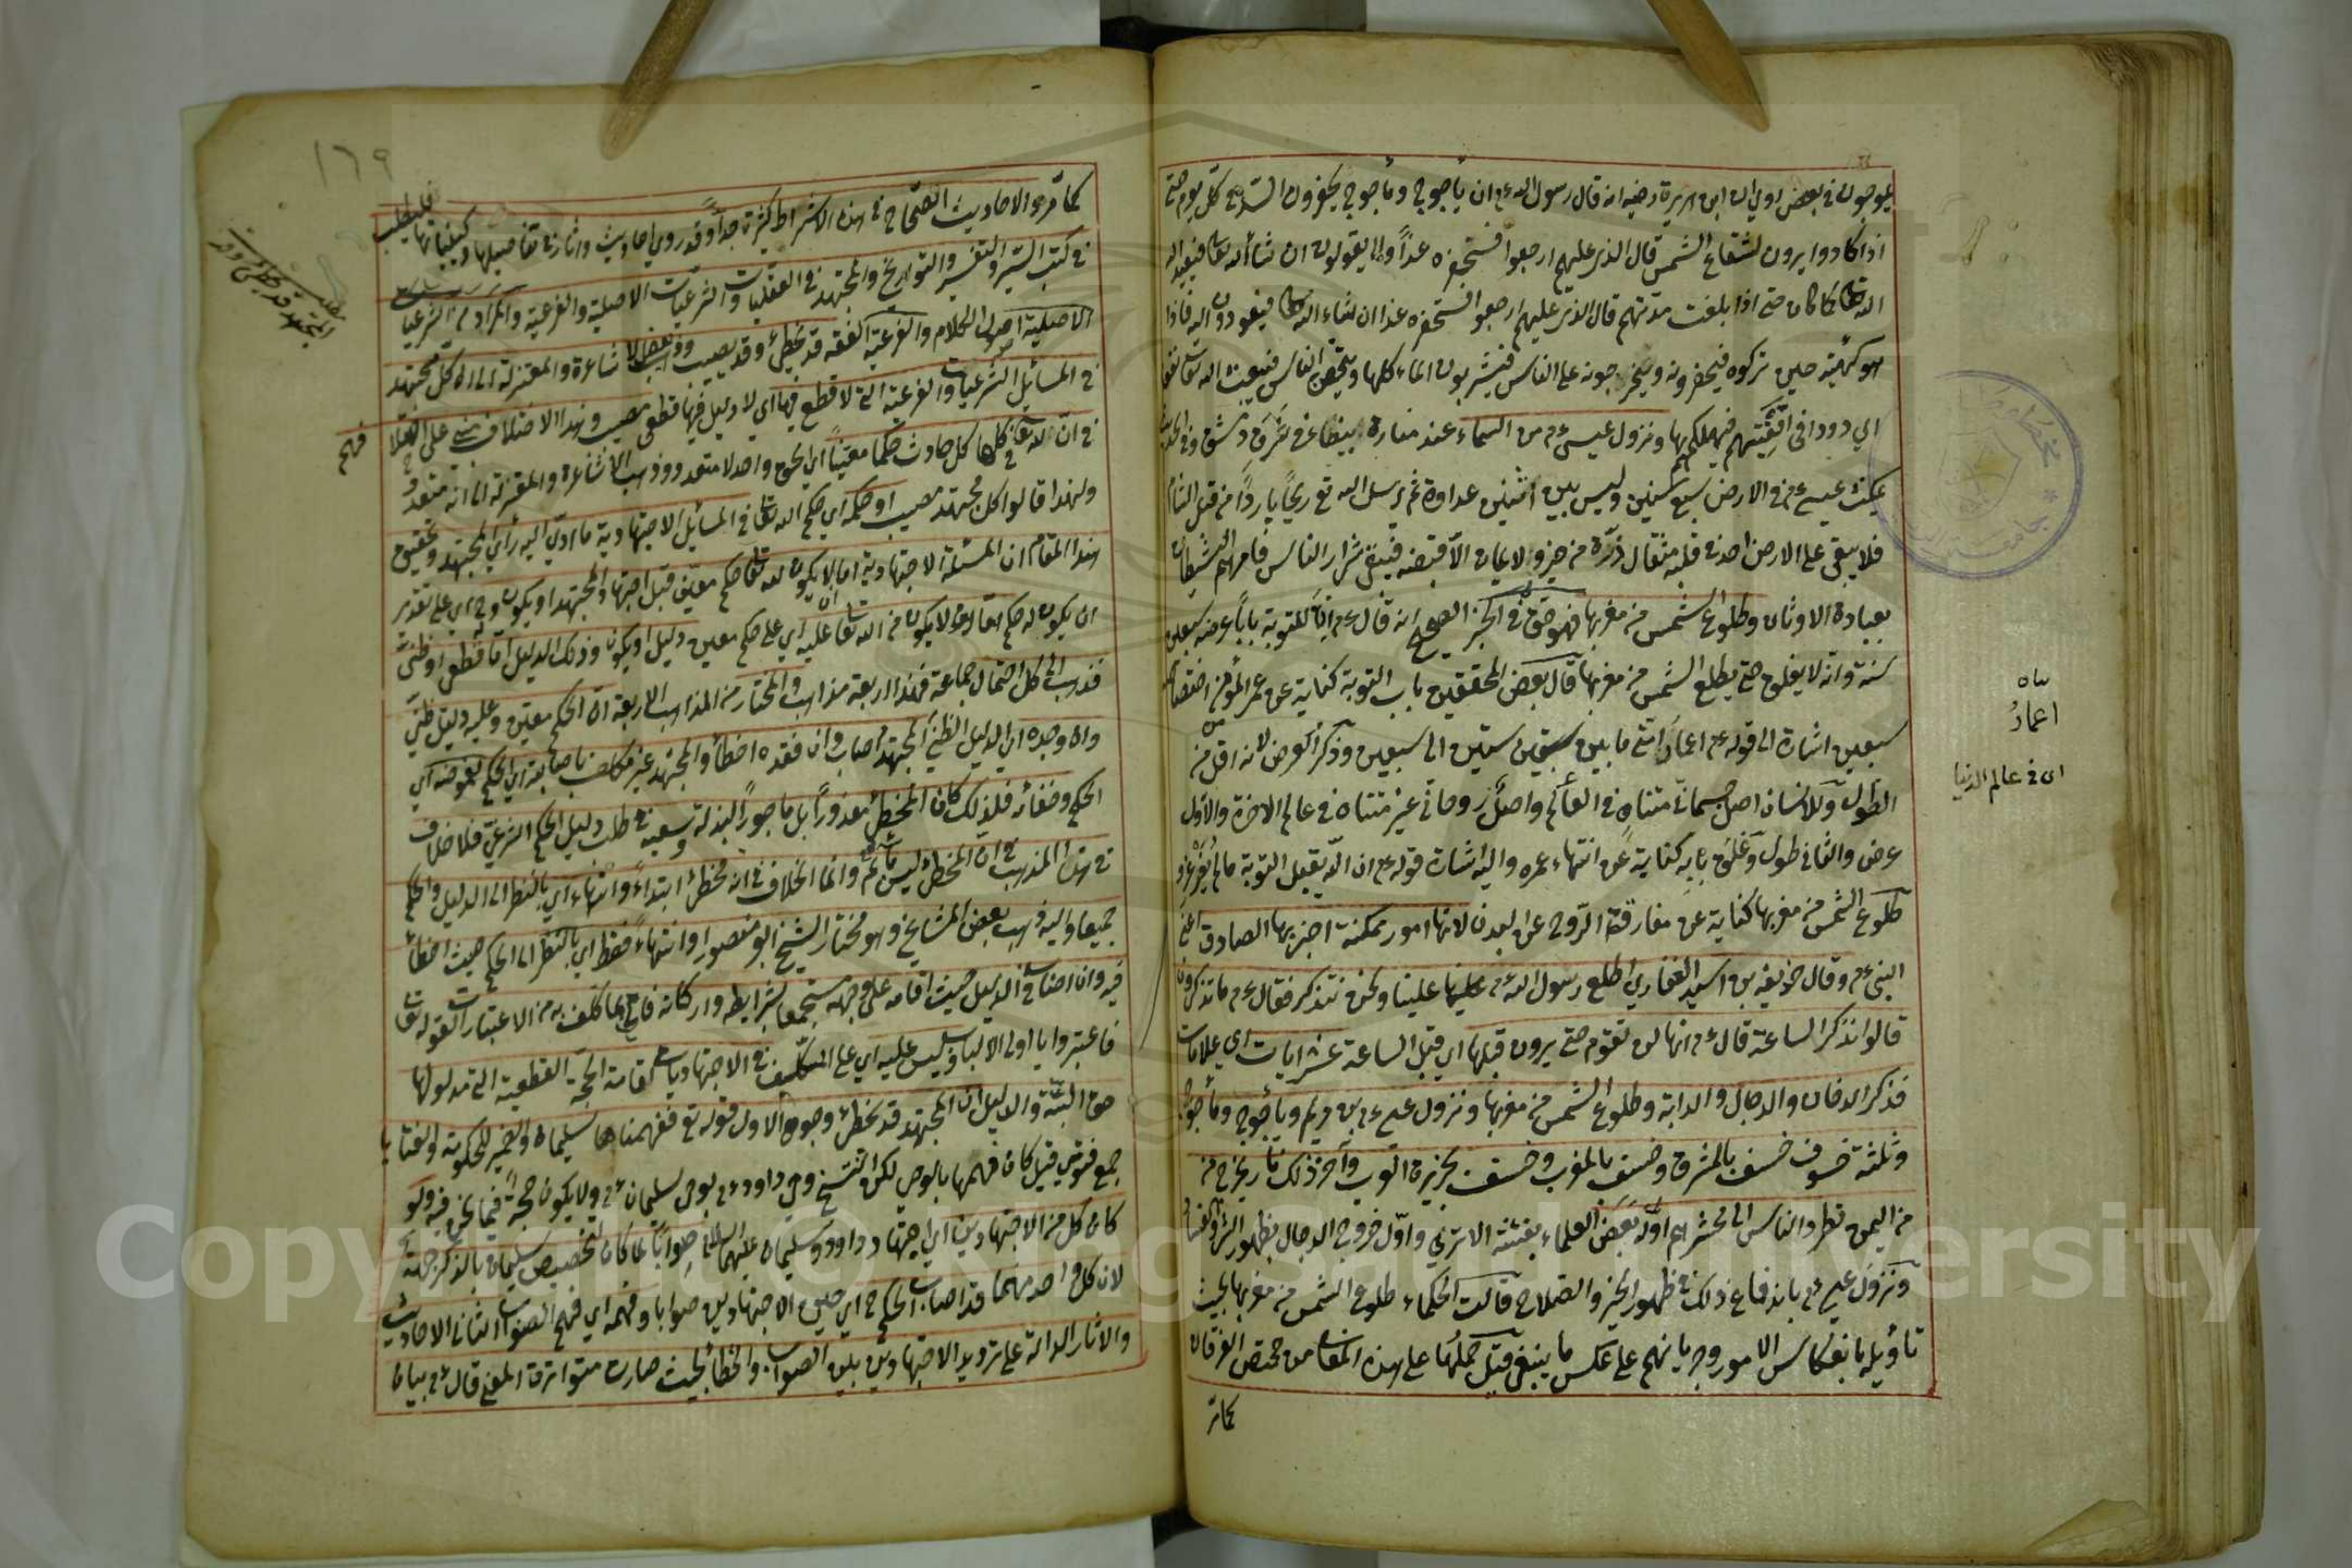 يموجون في بعض روي ان ابن هريرة رضيه انه قال رسول الله ع م ان يأجوج ومأجوج يحفرون السد في كل يوم حتى
اذا كادوا يرون لشعاع الشمس قال الذي عليهم ارجعوا فستحفره غداً ولا يقولون ان شاء الله تعا فيعيد اله
الله تعا كما كان حتى اذا بلغت مدتهم قال الذي عليهم ارجعوا فستحفره غدا ان شاء الله تعا فيعودون اليه فاذا
هو كهيئته حين تركوه فيحفرونه ويخرجونه على الناس فيشربون الماء كلها ويتحصن الناس فيبعث الله تعا نغفا
اي دودا في اقفيتهم فيهلكهم بها ونزول عيسى ع م من السماء عند منارة بيضاء في شرق دمشق وفي الحديث
يمكث عيسى ع م في الارض سبع سنين وليس بين اثنين عداوة ثم يرسل الله تع ريحاً بارداً من قبل الشام
فلا يبقى على الارض احد في قلبه مثقال ذرة من خير ولا ايمان الا قبضه فيبقى شرار الناس فامرهم الشيطان
بعبادة الاوثان وطلوع الشمس من مغربها فهو حق في الخبر الصحيح انه قال ع م ان للتوبة باباً عرضه سبعين
سنة وانه لا يغلق حتى يطلع الشمس من مغربها قال بعض المحققين باب التوبة كناية عن عمر المؤمن اختصاص
سبعين اشارة الى قوله ع م اعمار امتي ما بين ستين الى سبعين وذكر العرض لانه اقل من
الطول وللانسان اصل جسماني متناه في العالم واصل روحاني غير متناه في عالم الاخرة والاول
عرض والثاني طول وغلق بابه كناية عن انتهاء عمره واليه اشارة قوله ع م ان الله يقبل التوبة مالم يغرغر و
طلوع الشمس من مغربها كناية عن مفارقة الروح عن البدن لانها امور ممكنة اخبر بها الصادق اعني
النبي ع م وقال حذيفة بن اسيد الغفاري اطلع رسول الله ع م علينا ونحن نتذكر فقال ع م ما تذكرون
قالوا نذكر الساعة قال ع م انها لن تقوم حتى يرون قبلها اي قبل الساعة عشر ايات اي علامات
فذكر الدخان والدجال والدابة وطلوع الشمس من مغربها ونزول عيسى ع م بن مريم ويأجوج ومأجوج
وثلثة خسوف خسف بالمشرق وخسف بالمغرب وخسف بجزيرة العرب وآخر ذلك نار يخرج من
من اليمن تطرد الناس الى محشرهم اوّله بعض العلماء بفتنة الاتراك واوّل خروج الدجال بظهور الشر والفساد
ونزول عيسى ع م باندفاع ذلك في ظهور الخير والصلاح قالت الحكماء طلوع الشمس من مغربها يجب
تأويله بانعكاس الامور وجريانهم على عكس ما ينبغي قيل حملها على هذه المعاني من مختص الفرقان
كما مر
اعمار
اي في عالم الدنيا
١٦٩
كما مر والاحاديث الصحاح في هذه الاشراط كثيرة جداً وقد روي احاديث واثار في تفاصيلها وكيفياتها فليطلب
في كتب السير والتفسير والتواريخ والمجتهد في العقليات والشرعيات الاصلية والفرعية والمراد من الشرعيات
الاصلية اصول الكلام والفرعية الفقه قد يخطئ وقد يصيب وذهب بعض الاشاعرة والمعتزلة الى ان كل مجتهد
في المسائل الشرعيات والفرعية التي لا قطع فيها اي لا دليل فيها قطعي مصيب وهذا الاختلاف مبني على اختلافهم
في ان لله تعا في كل حادث حكما معيناً اي الحق واحد لا متعدد وذهب الاشاعرة والمعتزلة الى انه متعدد
ولهذا قالوا كل مجتهد مصيب او حكمه اي حكم الله تعا في المسائل الاجتهادية ما ادى اليه رأي المجتهد وتحقيق
هذا المقام ان المسئلة الاجتهادية اما ان لا يكون لله تعا حكم معين قبل اجتهاد المجتهد او يكون وح اي على تقدير
ان يكون له حكم اما ان لا يكون من الله تعا عليه اي على حكم معين دليل او يكون وذلك الدليل اما قطعي او ظني
فذهب الى كل احتمال جماعة فهذا اربعة مذاهب والمختار من المذاهب الاربعة ان الحكم معين وعليه دليل ظني
وان وجده اي الدليل الظني المجتهد اصاب وان فقده اخطأ والمجتهد غير مكلف باصابته اي الحكم لغموضه اي
الحكم وخفائه فلذلك كان المخطئ معذوراً بل ماجوراً لبذله وسعيه في طلب دليل الحكم الشرعي فلا خلاف
في هذا المذهب في ان المخطئ ليس بآثم وانما الخلاف في انه مخطئ ابتداءً وانتهاء اي بالنظر الى الدليل والحكم
جميعا واليه ذهب بعض المشايخ وهو مختار الشيخ ابو منصور او انتهاءً فقط اي بالنظر الى الحكم حيث اخطأ
فيه وان اصاب في الدليل حيث اقامه على وجهه مستجمعا لشرايطه واركانه فاتى بما كلف به من الاعتبارات لقوله تعا
فاعتبروا يا اولي الالباب وليس عليه اي على المكلف في الاجتهاديات اقامة الحجة القطعية التي مدلولها
حق البتة والدليل ان المجتهد قد يخطئ وجوه الاول قوله تع ففهمناها سليمان والضمير للحكومة والفتيا
جمع فتوى قيل كان فهمها بالوحي لكن انتسخ وحي داود ع م بوحي سليمان ع م ولا يكون حجة فيما نحن فيه ولو
كان كل من الاجتهادين اي اجتهاد داود وسليمان عليهما السلام صواباً لما كان لتخصيص سليمان بالذكر جهة
لان كل واحد منهما قد اصاب الحكم ح اي حين الاجتهادين صوابا وفهمه اي فهم الصواب الثاني الاحاديث
والاثار الدالة على ترديد الاجتهاد بين الصواب والخطأ بحيث صارت متواترة المعنى قال ع م بيانا
مطلب
المجتهد قد يخطئ وقد